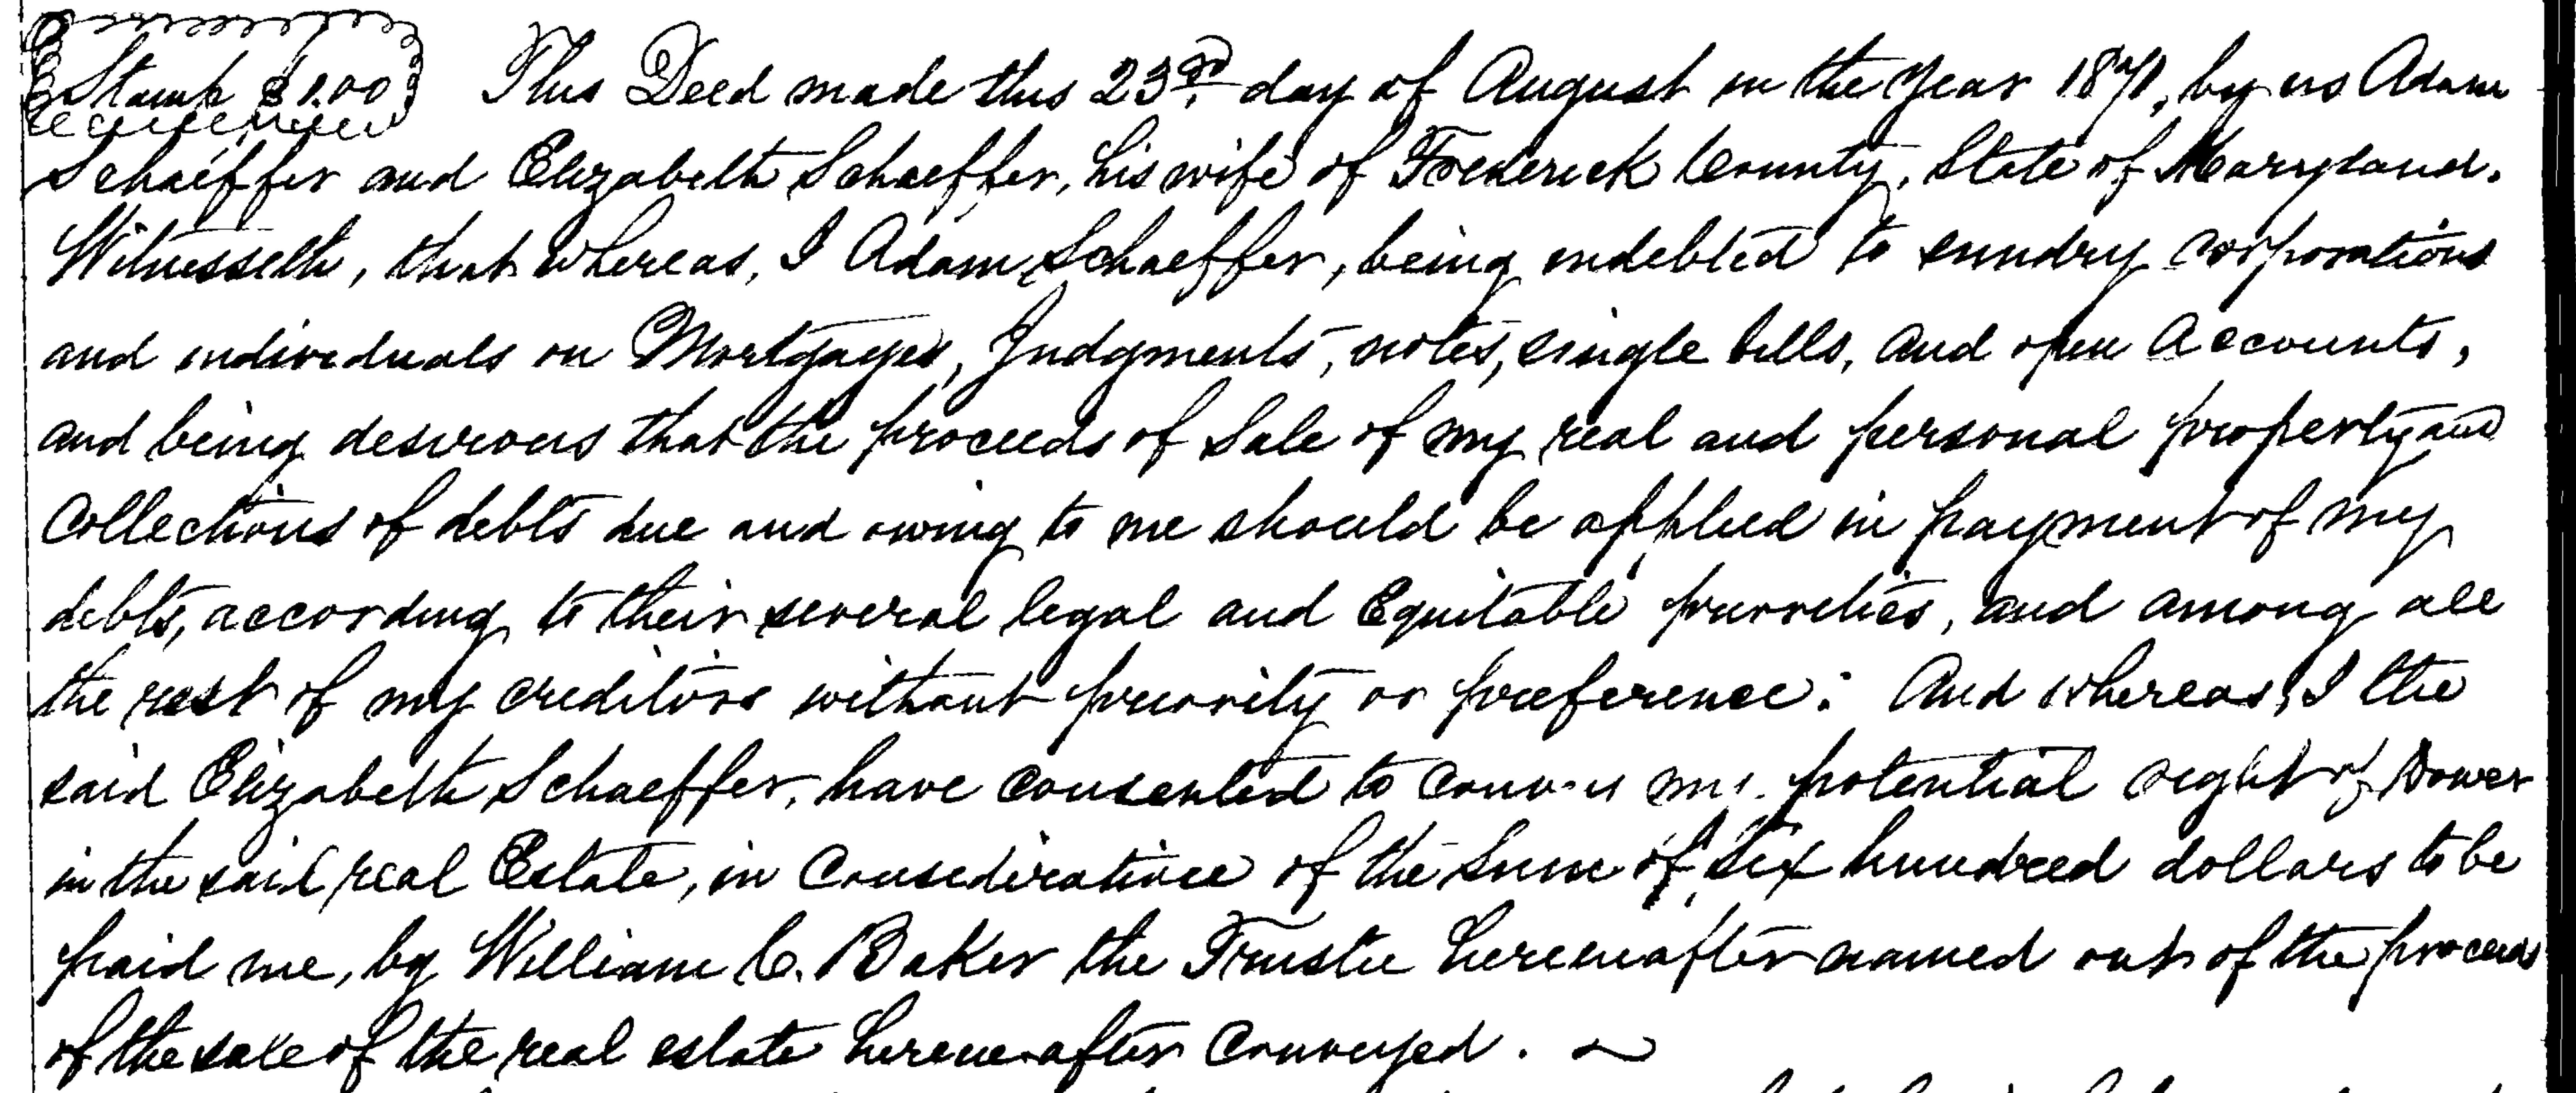 Stamp $1.00 This Deed made this 23rd day of August in the Year 1871, by us Adam
Schaeffer and Elizabeth Schaeffer, his wife of Frederick County, State of Maryland.
Witnesseth, that whereas, I Adam Schaeffer, being indebted to sundry corporations
and individuals on Mortgages, Judgments, notes, single bills, and open Accounts,
and being desirous that the proceeds of Sale of my real and personal property and
Collections of debts due and owing to me should be applied in payment of my
debts, according to their several legal and Equitable priorities, and among all
the rest of my creditors without priority or preference: And whereas, I the
said Elizabeth Schaeffer, have consented to convey my potential right of Dower
in the said real Estate, in Consideration of the Sum of Six hundred dollars to be
paid me, by William C. Baker the Trustee hereinafter named out of the proceeds
of the sale of the real estate hereinafter Conveyed.